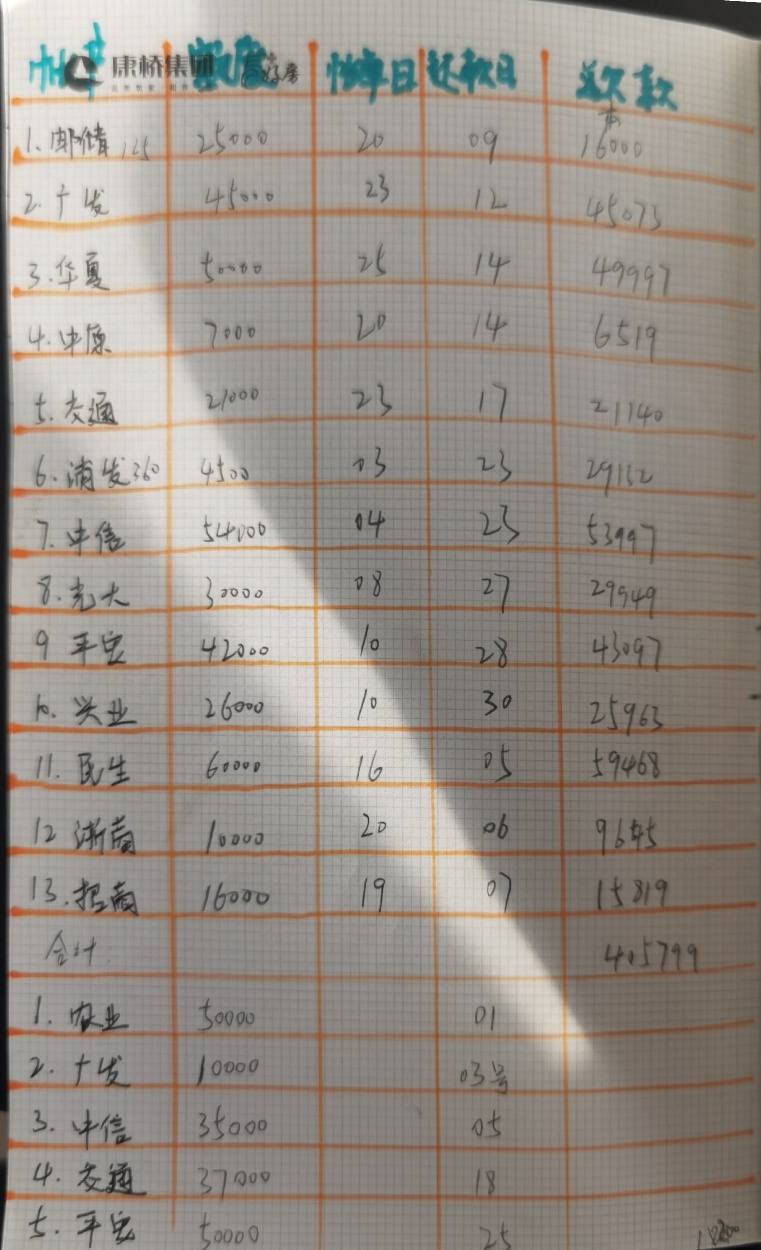 康桥集团 额度 帐单日 还款日 总欠款
1. 邮储 25000 20 09 16000
2. 广发 45000 23 12 45073
3. 华夏 50000 25 14 49997
4. 中原 7000 20 14 6519
5. 交通 21000 23 17 21140
6. 浦发360 4500 03 23 29152
7. 中信 54000 04 23 53997
8. 光大 30000 08 27 29949
9 平安 42000 10 28 43097
10. 兴业 26000 10 30 25963
11. 民生 60000 16 05 59468
12 浙商 10000 20 06
13. 招商 16000 19 07 15819
合计 405799
1. 农业 50000 01
2. 广发 10000 03号
3. 中信 35000 05
4. 交通 37000 18
5. 平安 50000 25